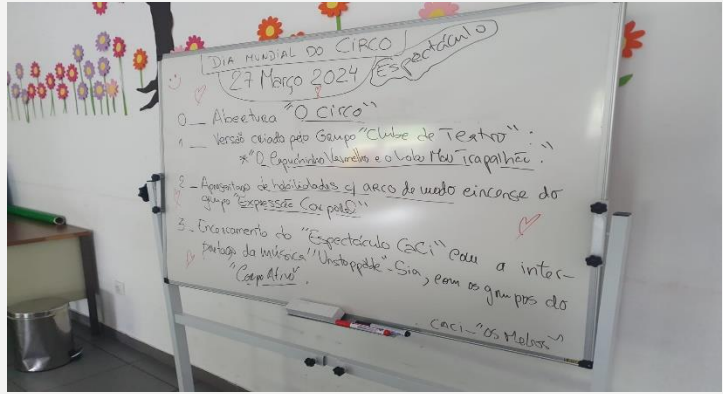 DIA MUNDIAL DO CIRCO
27 Março 2024
Espectáculo
0_ Abertura "O CIRCO"
1_ Versão criada pelo Grupo "Clube de Teatro":
*"O Capuchinho Vermelho e o Lobo Mau Trapalhão."
2_ Apresentação de habilidades c/ arco de modo do
grupo "Expressão Corporal"
3_ Encerramento do "Espectáculo CACI" com a inter-
da música "Unstoppable" - Sia, com os grupos do
"Corpo Ativo".
CACI - "Os